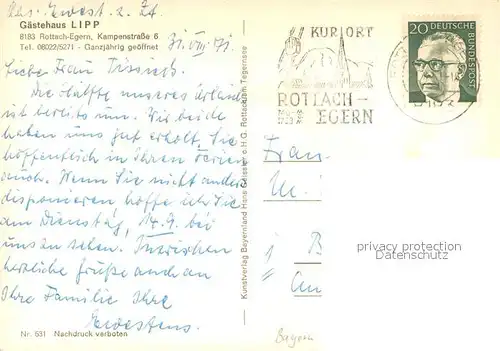 Gästehaus LIPP
8183 Rottach-Egern, Kampenstraße 6
Tel. 08022/5271 - Ganzjährig geöffnet
31. VIII. 71.
Liebe Frau
Die Hälfte unseres Urlaubs
ist bereits um. Wir beide
haben uns gut erholt, Sie
hoffentlich in Ihren Ferien
auch. Wenn Sie nicht anders
disponieren hoffe ich Sie
am Dienstag, 14.9. bei
uns zu sehen. Inzwischen
herzliche Grüße auch an
Ihre Familie Ihre
Ewestens.
Nr. 531 Nachdruck verboten
Kunstverlag Bayernland Hans Geisser o.H.G. Rottach am Tegernsee
KURORT
ROTTACH-
EGERN
20
DEUTSCHE BUNDESPOST
Frau
B
privacy protection
Bayern